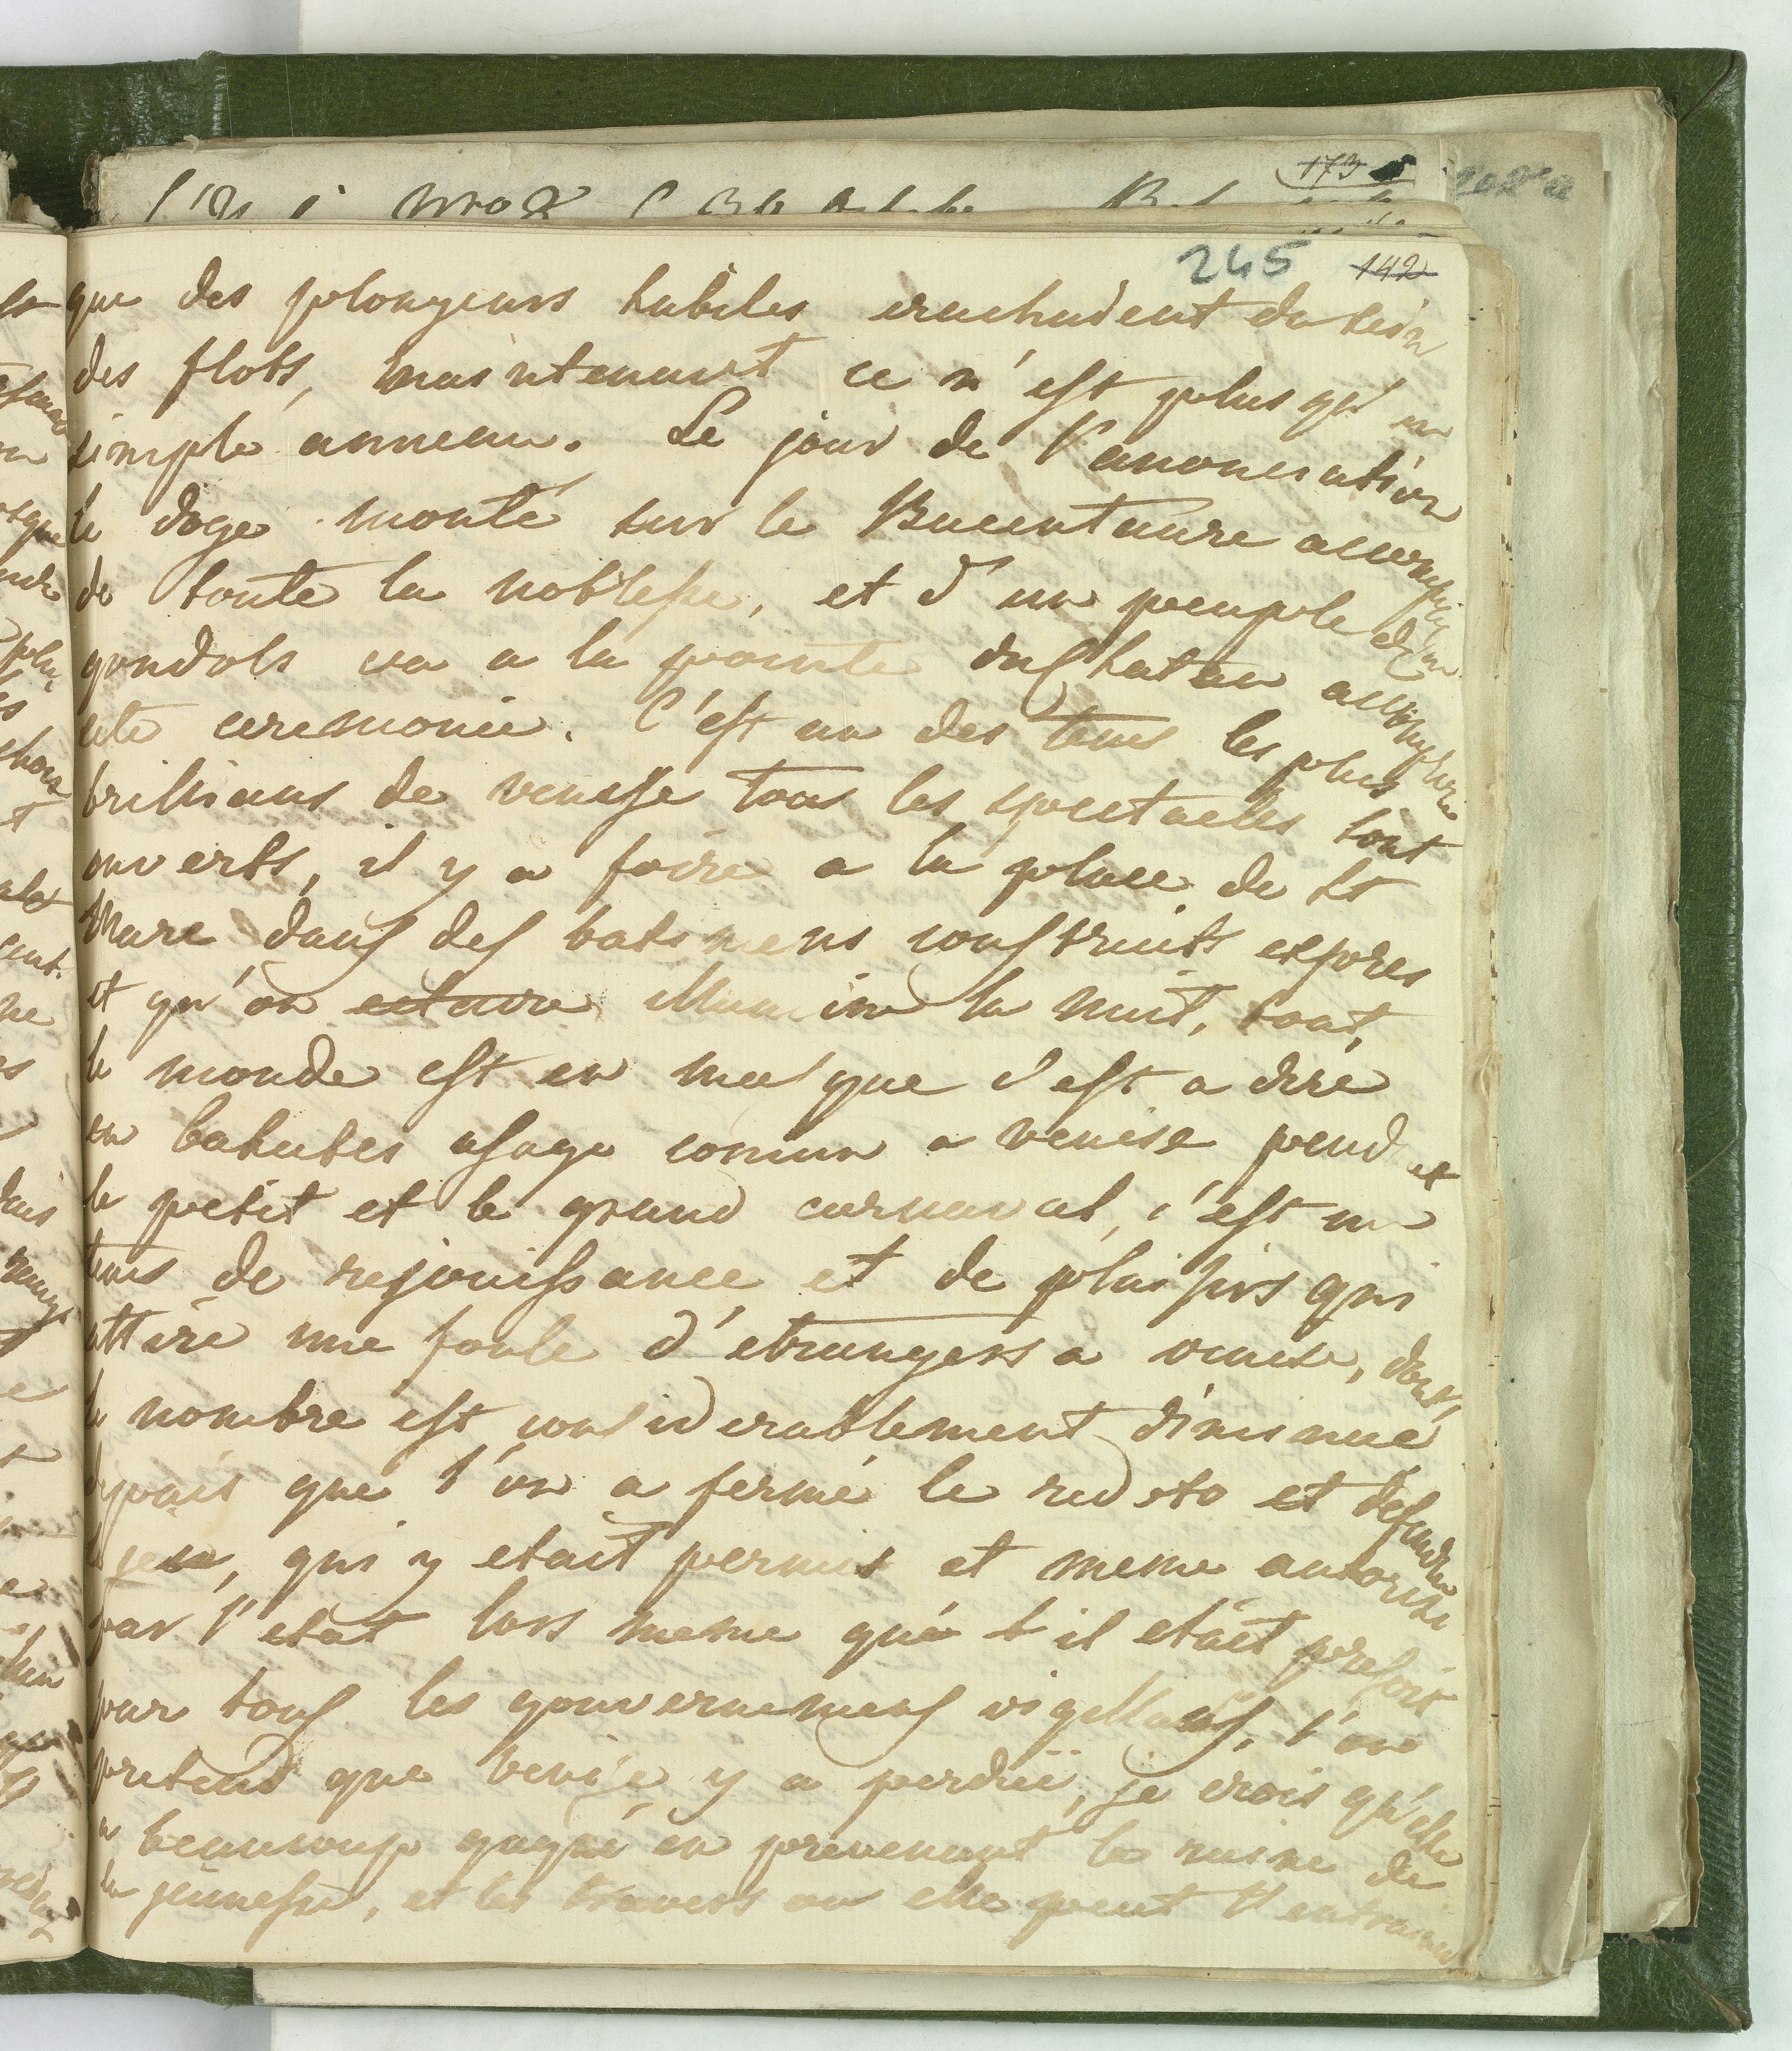 245 142
que des plongeurs habiles erachident du sein
des flots, maintenant ce n'est plus qu'un
simple anneau. Le jour de l'anonciation
le doge monté sur le Bucentaure accompagné
de toute la noblesse, et d'un peuple de
gondols va a la pointe du Chateau accomplir
cete ceremonie. C'est un des tems les plus
brillians de venise tous les spectacles sont
ouverts, il y a foire a la place de St
Marc dans des batimens construits expres
et qu'on eclaire illumine la nuit, tout
le monde est en masque c'est a dire
en bahutes usage comun a venise pend et
le petit et le grand carnaval, c'est un
tems de rejouissance et de plaisirs qui
attire une foule d'etrangers a venise, dont
le nombre est considerablement diminué
depuis que l'on a fermé le redoto et defendu
le jeu, qui y etait permis et meme autorisé
par l'etat lors meme qu'il etait
par tous les gouvernemens vigillans, l'on
pretend que venise y a perdue, je crois qu'elle
a beaucoup gagné en prevenant la ruine de
la jeunesse, et les travers ou elle peut l'entrainer